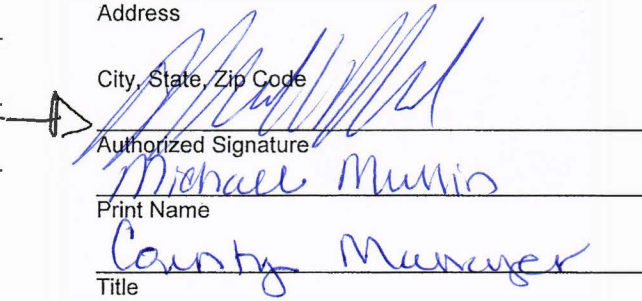 Address
City, State, Zip Code
Authorized Signature
Michael Mullin
Print Name
County Manager
Title